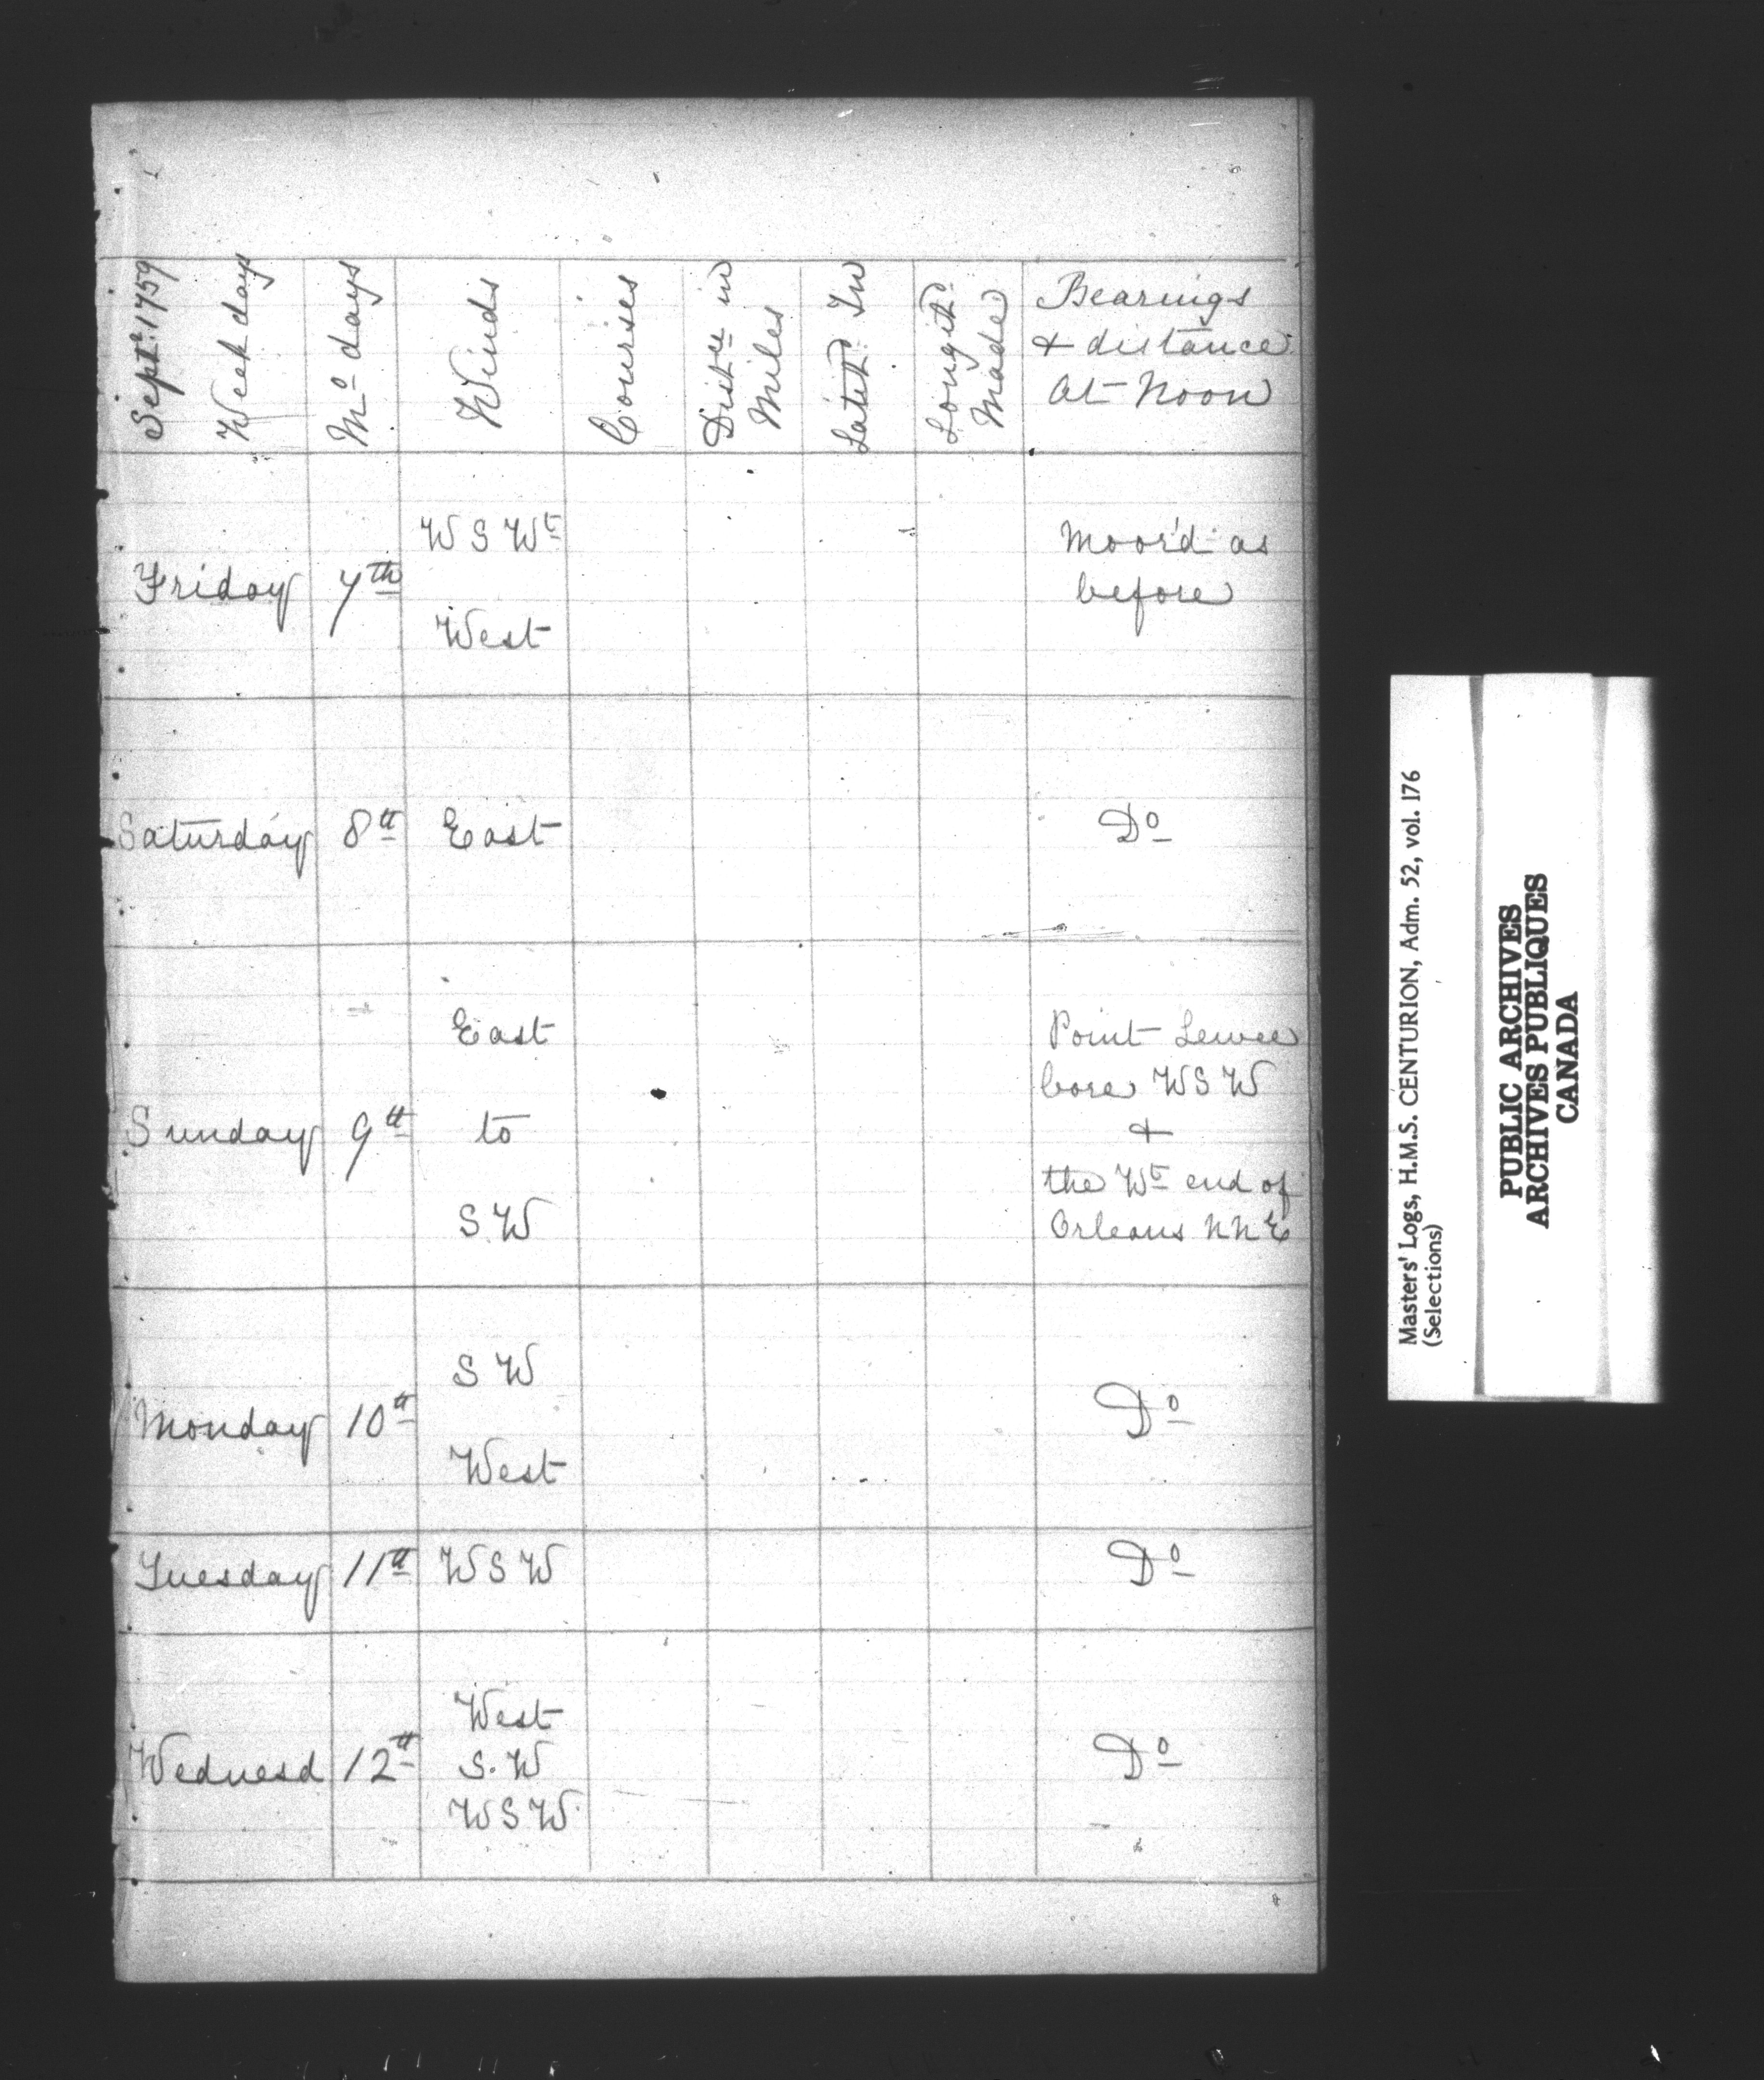 Sept: 1759
Week days
Mo days
Winds
Courses
Distce in
Miles
Latitd: In
Longitd:
Made
Bearings
& distance
At Noon
Friday 7th
W S Wt
West
Moor'd as
before
Saturday 8th East Do
Sunday 9th
East
to
S.W
Point Levee
bore W S W
&
the Wt end of
Orleans N N E
Monday 10th
S W
West
Do
Tuesday 11th W S W Do
Wednesd 12th
West
S. W
W S W
Do
Masters' Logs, H.M.S. CENTURION, Adm. 52, vol. 176
(Selections)
PUBLIC ARCHIVES
ARCHIVES PUBLIQUES
CANADA